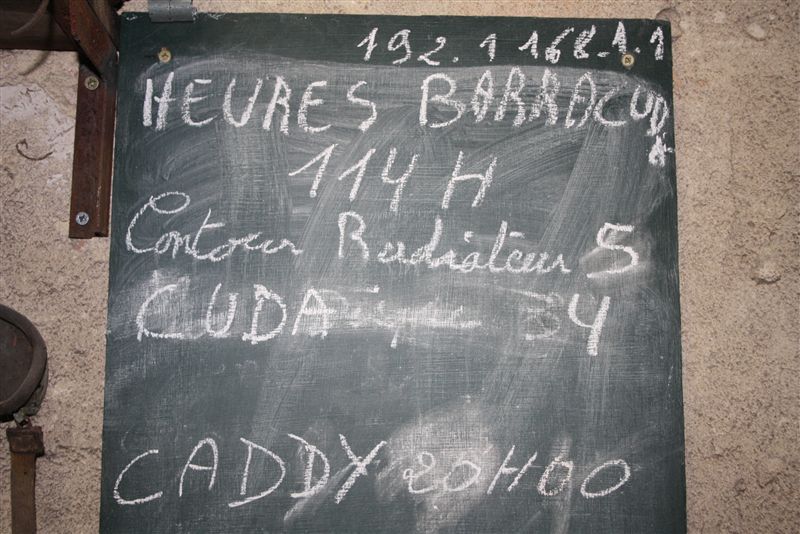 192.1 168.1.1
HEURES BARRACUDA
114 H
Contour Radiateur 5
CUDA 4
CADDY 20H00